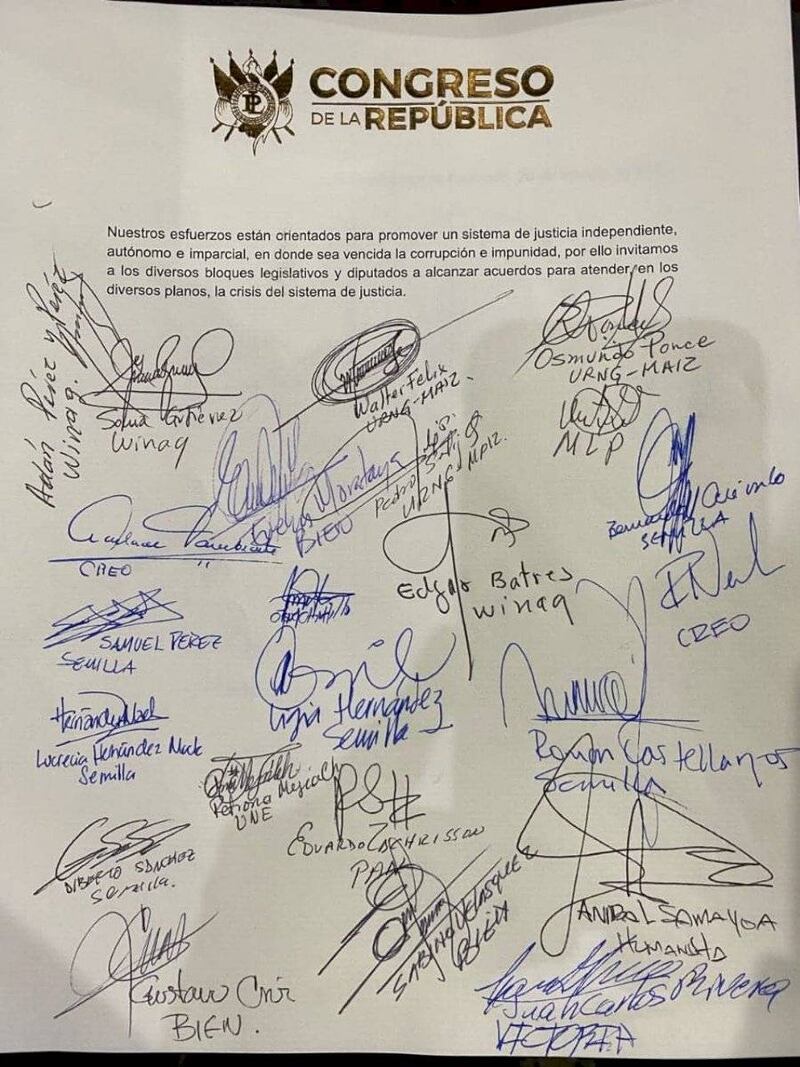 PL
CONGRESO
DE LA REPÚBLICA
Nuestros esfuerzos están orientados para promover un sistema de justicia independiente,
autónomo e imparcial, en donde sea vencida la corrupción e impunidad, por ello invitamos
a los diversos bloques legislativos y diputados a alcanzar acuerdos para atender, en los
diversos planos, la crisis del sistema de justicia.
Adán Pérez y Pérez
Winaq.
Sonia Gutiérrez
Winaq
Walter Felix
URNG-MAIZ.
Osmundo Ponce
URNG-MAIZ
MLP
Pedro
URNG-MAIZ.
Moradaya
BIEN
SEMILLA
CREO
Edgar Batres
Winaq
CREO
SAMUEL PEREZ
SEMILLA
Ligia Hernández
Semilla
Hernández Mack
Lucrecia Hernández Mack
Semilla
Román Castellanos
Semilla
Petrona Mejía
UNE
EDUARDO ZACHRISSON
PAN
DIBERTO SANCHEZ
Semilla.
SABINO VELASQUEZ
BIEN
ANIBAL SAMAYOA
HUMANISTA
Gustavo Cruz
BIEN.
Juan Carlos Rivera
VICTORIA